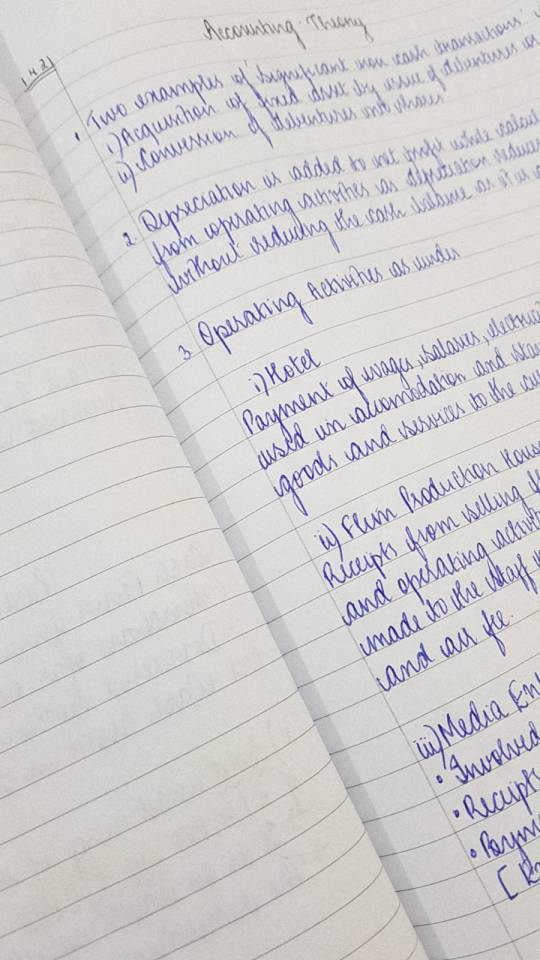 Accounting Theory
1.4.21
. Two examples of 'significant non cash transactions'
i) Acquisition of fixed asset by issue of debentures or
ii) Conversion of debentures into shares
2. Depreciation is added to net profit while
from operating activities as depreciation reduces
without reducing the cash balance as it is
3. Operating Activities as under
i) Hotel
Payment of wages, salaries,
used in accomodation and
goods and services to the
ii) Film Production
Receipts from selling
and operating
made to the staff
and as fee.
iii) Media
• Involved
• Receipts
•
[